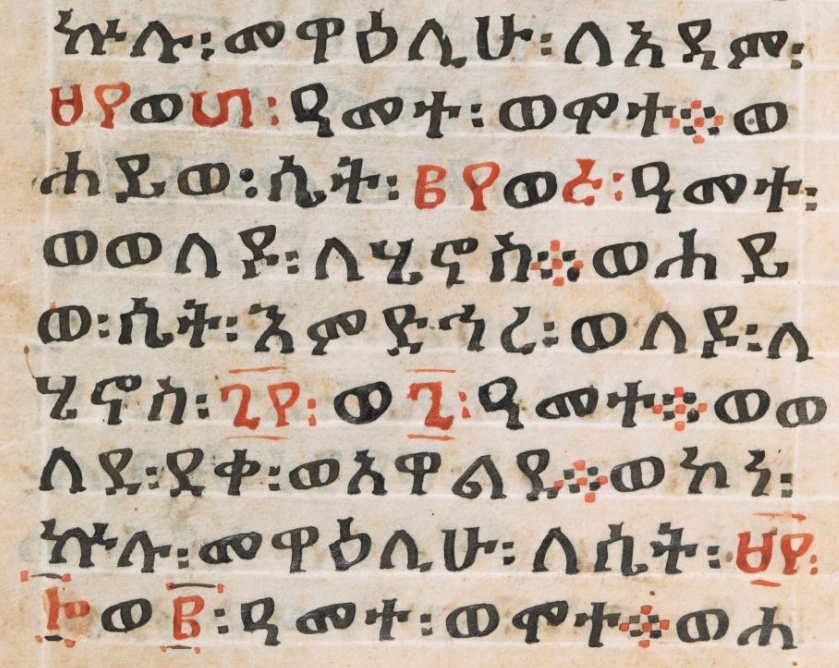 ኵሉ፡መዋዕሊሁ፡ለአዳም፡
፱፻ወ፴፡ዓመተ፡ወሞተ፨ወ
ሐይወ፡ሴት፡፪፻ወ፭፡ዓመተ፡
ወወለዶ፡ለሄኖስ፨ወሐይ
ወ፡ሴት፡እምድኅረ፡ወለዶ፡ለ
ሄኖስ፡፯፻፡ወ፯፡ዓመተ፨ወወ
ለደ፡ደቀ፡ወአዋልደ፨ወኮነ፡
ኵሉ፡መዋዕሊሁ፡ለሴት፡፱፻፡
፲ወ፪፡ዓመተ፡ወሞተ፨ወሐ